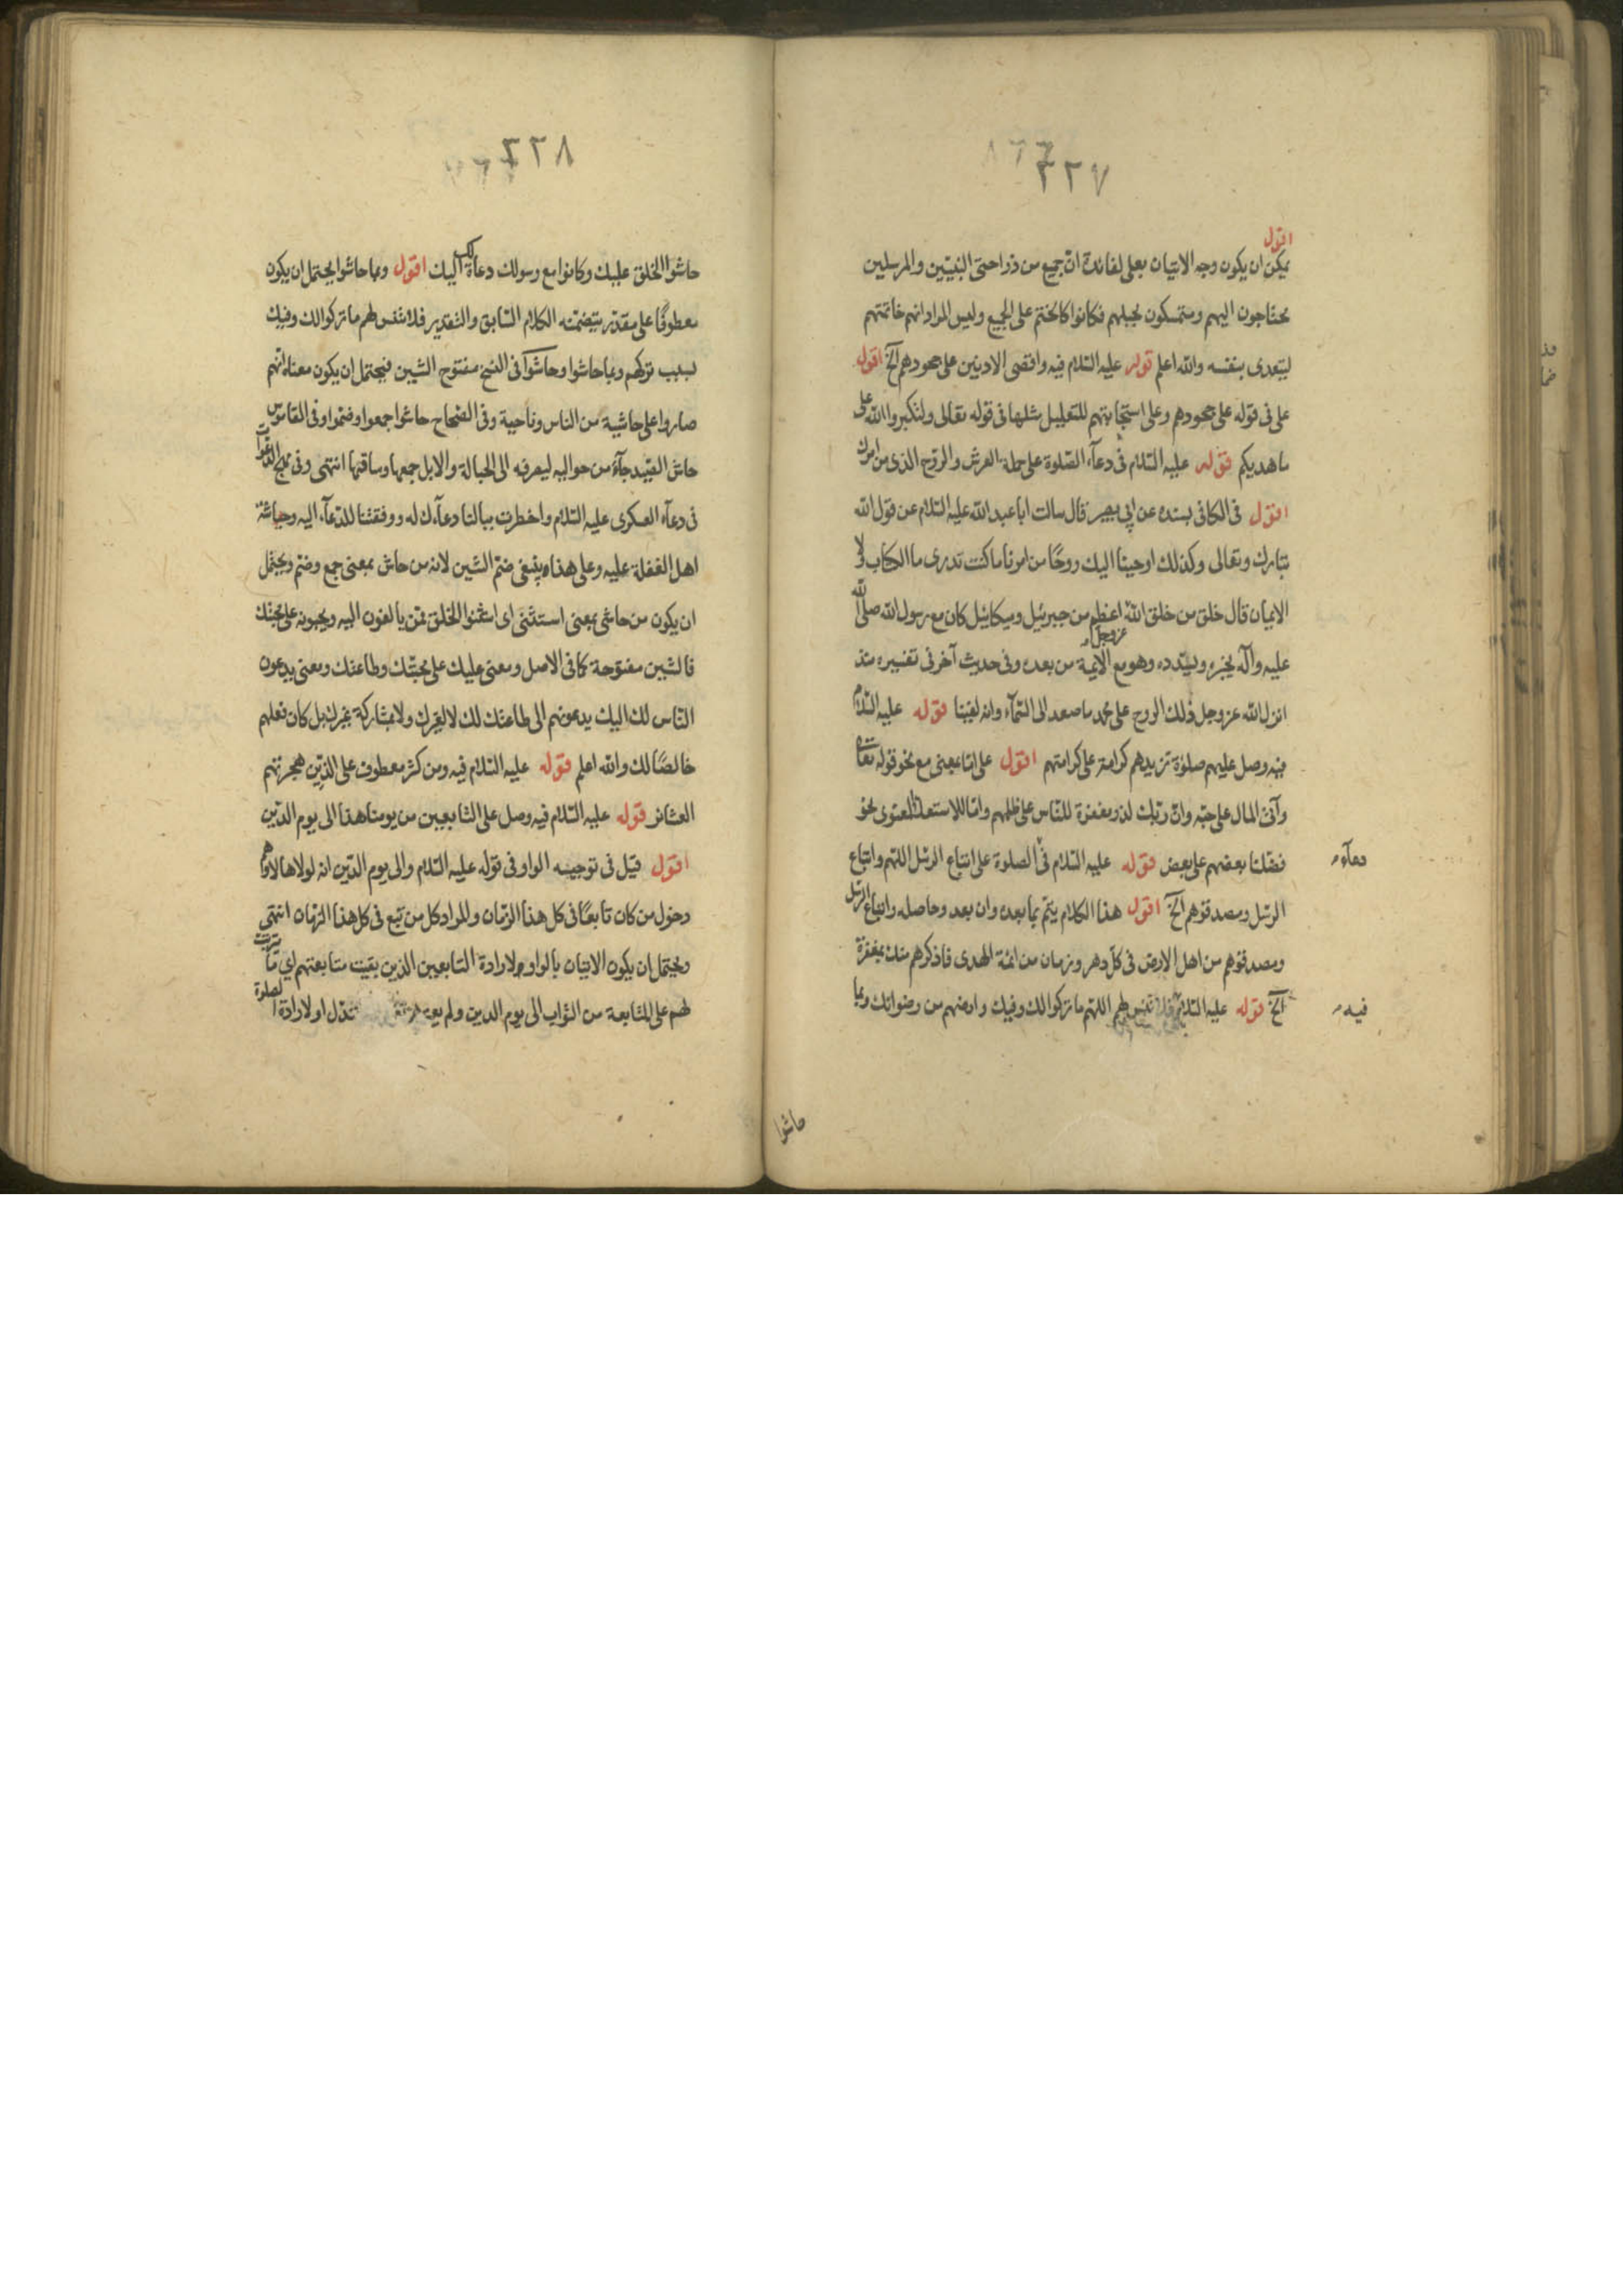 ٢٢٧
اقول
يمكن ان يكون وجه الاتيان بعلى لفائدة ان جميع من ذرا حتى النبيّين والمرسلين
يحتاجون اليهم ومتمسكون بحبلهم فكانوا كالختم على الجميع وليس المراد انهم خاتمتهم
ليتعدى بنفسه والله اعلم قوله عليه السّلام فيه واقصى الادنين على جحودهم الخ اقول
على فى قوله على جحودهم وعلى استجابتهم للتعليل مثلها فى قوله تعالى ولتكبروا الله على
ما هديكم قوله عليه السّلام فى دعآء الصّلوة على حملة العرش والروح الذى من امرك
اقول فى الكافى بسنده عن ابى بصير قال سالت ابا عبد الله عليه السّلام عن قول الله
تبارك وتعالى وكذلك اوحينا اليك روحًا من امرنا ما كنت تدرى ما الكتاب ولا
الايمان قال خلق من خلق الله عزوجل اعظم من جبرئيل وميكائيل كان مع رسول الله صلى الله
عليه وآله يخبره ويسدده وهو مع الائمة من بعده وفى حديث آخر فى تفسيره منذ
انزل الله عز وجل ذلك الروح على محمد ما صعد الى السّمآء وانه لفينا قوله عليه السّلام
فيه وصل عليهم صلوة تزيدهم كرامة على كرامتهم اقول على امّا بمعنى مع نحو قوله تعالى
وآتى المال على حبّه وانّ ربّك لذو مغفرة للنّاس على ظلمهم وامّا للاستعلاء المعنوى نحو
فضّلنا بعضهم على بعض قوله عليه السّلام فى دعآء الصلوة على اتباع الرسل اللهم واتباع
الرسل ومصدقوهم الخ اقول هذا الكلام يتم بما بعده وان بعد وحاصله واتباع الرسل
ومصدقوهم من اهل الارض فى كلّ دهر وزمان من ائمّة الهدى فاذكرهم منك بمغفرة
الخ قوله عليه السّلام فيه فلا تنس لهم اللهم ما تركوا لك وفيك وارضهم من رضوانك وبما
حاشوا
٢٢٨
حاشوا الخلق عليك وكانوا مع رسولك دعاة لك اليك اقول وبما حاشوا يحتمل ان يكون
معطوفًا على مقدّر يتضمنه الكلام السّابق والتقدير فلا تنس لهم ما تركوا لك وفيك
بسبب تركهم وبما حاشوا وحاشوا كما فى النسخ مفتوح الشين فيحتمل ان يكون معناه انّهم
صاروا على حاشية من الناس وناحية وفى الصحاح حاشوا جمعوا وضموا وفى القاموس
حاش الصّيد جآءه من حواليه ليصرفه الى الحبالة والابل جمعها وساقها انتهى وفى مهج الدعوات
فى دعآء العسكرى عليه السّلام واخطرت ببالنا دعآءك له ووفقتنا للدعآء اليه وحياشة
اهل الغفلة عليه وعلى هذا ينبغى ضمّ الشين لانه من حاش بمعنى جمع وضم ويحتمل
ان يكون من حاشى بمعنى استثنى اى استثنوا الخلق فمن يالفون اليه ويحبونه على محبتك
فالشين مفتوحة كما فى الاصل ومعنى عليك على محبّتك وطاعتك ومعنى يدعون
النّاس لك اليك يدعونهم الى طاعتك لك لا لغيرك ولا بمشاركة غيرك بل كان فعلهم
خالصًا لك والله اعلم قوله عليه السّلام فيه ومن كثر معطوف على الذين هجرتهم
العشائر قوله عليه السّلام فيه وصل على التابعين من يومنا هذا الى يوم الدّين
اقول قيل فى توجيه الواو فى قوله عليه السّلام والى يوم الدّين انه لولاها لاوهم
دخول من كان تابعًا فى كل هذا الزمان والمراد كل من تبع فى كل هذا الزمان انتهى
ويحتمل ان يكون الاتيان بالواو لارادة التابعين الذين بقيت متابعتهم اى ما يترتب
لهم على المتابعة من الثواب الى يوم الدين ولم او لارادة الصلوة